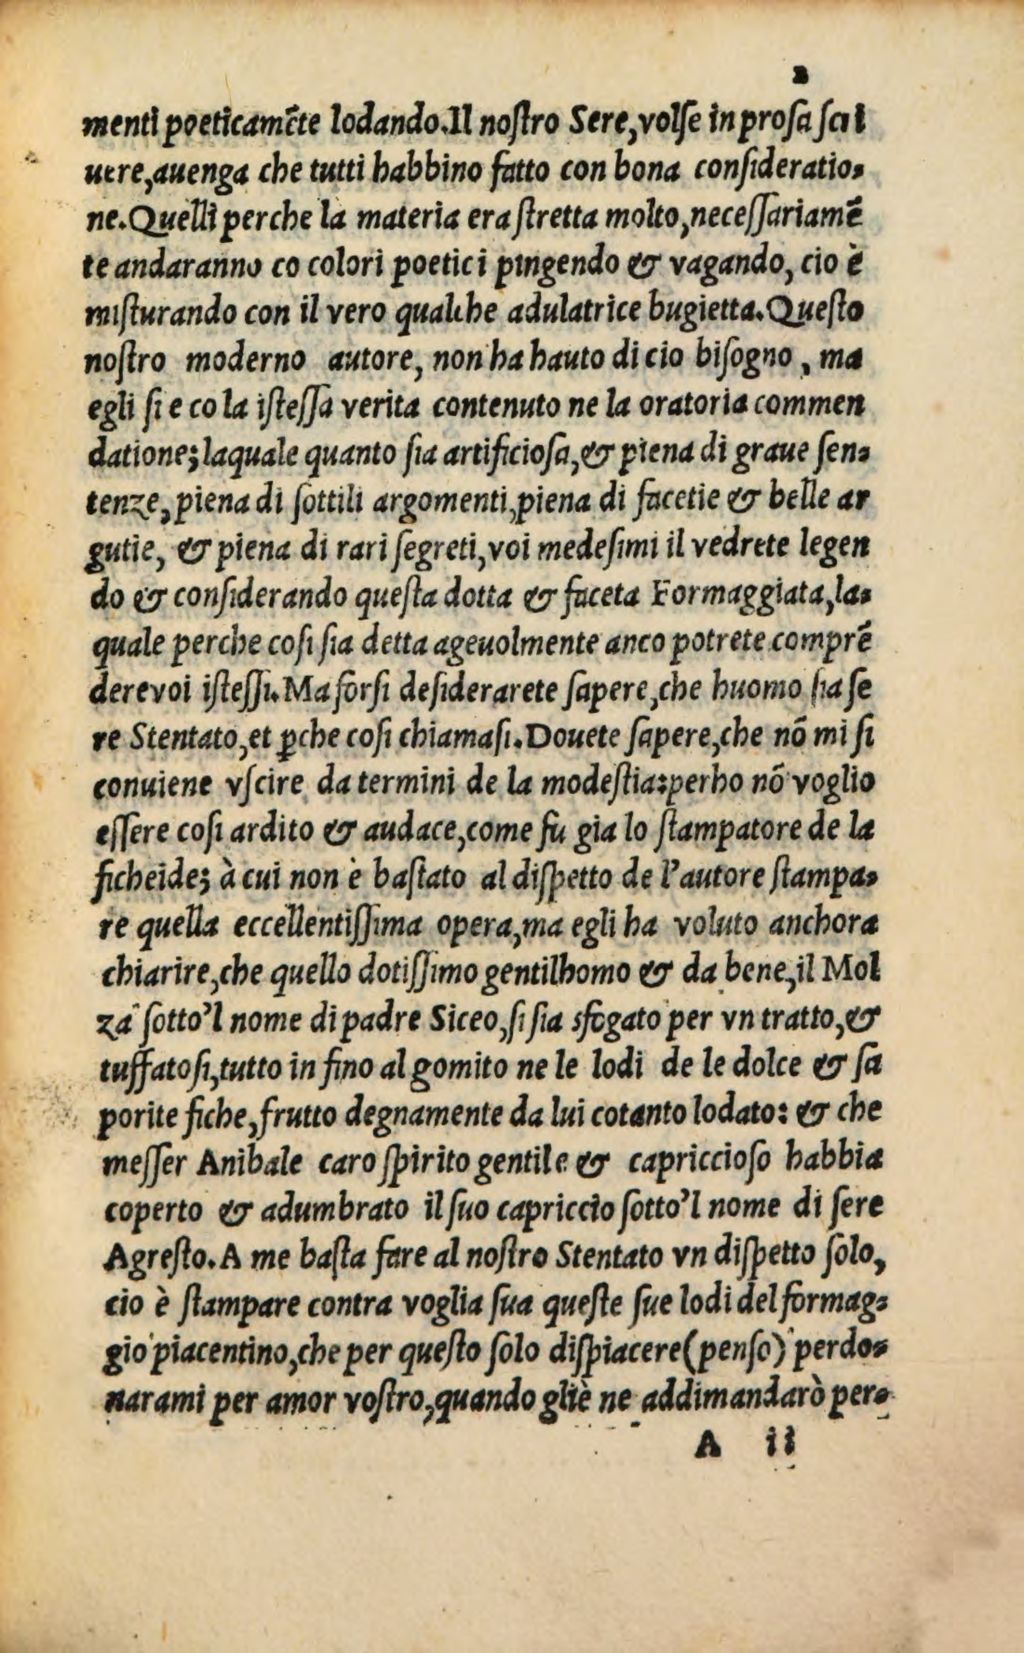 2
menti poeticamẽte lodando.Il noſtro Sere,volſe in proſa ſcri
uere,auenga che tutti habbino fatto con bona conſideratio⸗
ne.Quelli perche la materia era ſtretta molto,neceſſariamẽ
te andaranno co colori poetici pingendo & vagando, cio è
miſturando con il vero qualche adulatrice bugietta.Queſto
noſtro moderno autore, non ha hauto di cio biſogno , ma
egli ſi e co la iſteſſa verita contenuto ne la oratoria commen
datione;laquale quanto ſia artificioſa,& piena di graue ſen⸗
tenze,piena di ſottili argomenti,piena di facetie & belle ar
gutie, & piena di rari ſegreti,voi medeſimi il vedrete legen
do & conſiderando queſta dotta & faceta Formaggiata,la⸗
quale perche coſi ſia detta ageuolmente anco potrete comprẽ
dere voi iſteſſi.Ma forſi deſiderarete ſapere,che huomo ſia ſe
re Stentato,et ꝑche coſi chiamaſi.Douete ſapere,che nõ mi ſi
conuiene vſcire da termini de la modeſtia:perho nõ voglio
eſſere coſi ardito & audace,come fu gia lo ſtampatore de la
ficheide; à cui non è baſtato al diſpetto de l'autore ſtampa⸗
re quella eccellentiſſima opera,ma egli ha voluto anchora
chiarire,che quello dotiſſimo gentilhomo & da bene,il Mol
za ſotto'l nome di padre Siceo,ſi ſia sfogato per vn tratto,&
tuffatoſi,tutto in fino al gomito ne le lodi de le dolce & ſa
porite fiche,frutto degnamente da lui cotanto lodato: & che
meſſer Anibale caro ſpirito gentile & capriccioſo habbia
coperto & adumbrato il ſuo capriccio ſotto'l nome di ſere
Agreſto.A me baſta fare al noſtro Stentato vn diſpetto ſolo,
cio è ſtampare contra voglia ſua queſte ſue lodi del formag⸗
gio piacentino,che per queſto ſolo diſpiacere(penſo) perdo⸗
narami per amor voſtro,quando gliè ne addimandarò per⸗
A ii